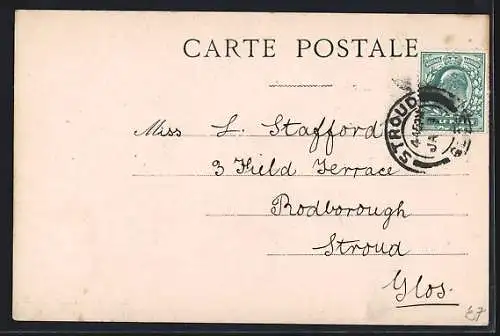 CARTE POSTALE
STROUD
JA
Miss L. Stafford
3 Field Terrace
Rodborough
Stroud
Glos.
£7